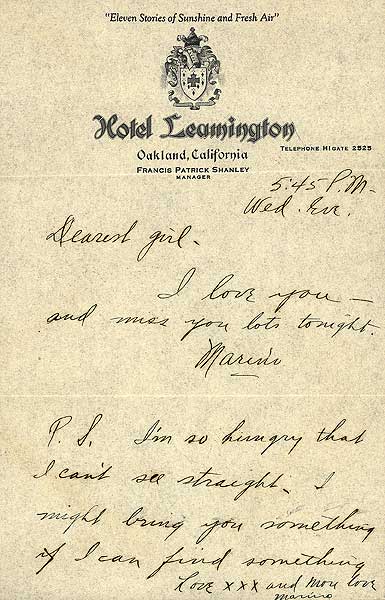 "Eleven Stories of Sunshine and Fresh Air"
Hotel Leamington
Oakland, California
TELEPHONE HIGATE 2525
FRANCIS PATRICK SHANLEY
MANAGER
5:45 P.M.
Wed. Eve.
Dearest girl.
I love you —
and miss you lots tonight.
Marino
P.S. I'm so hungry that
I can't see straight. I
might bring you something
if I can find something
Love xxx and more love
Marino